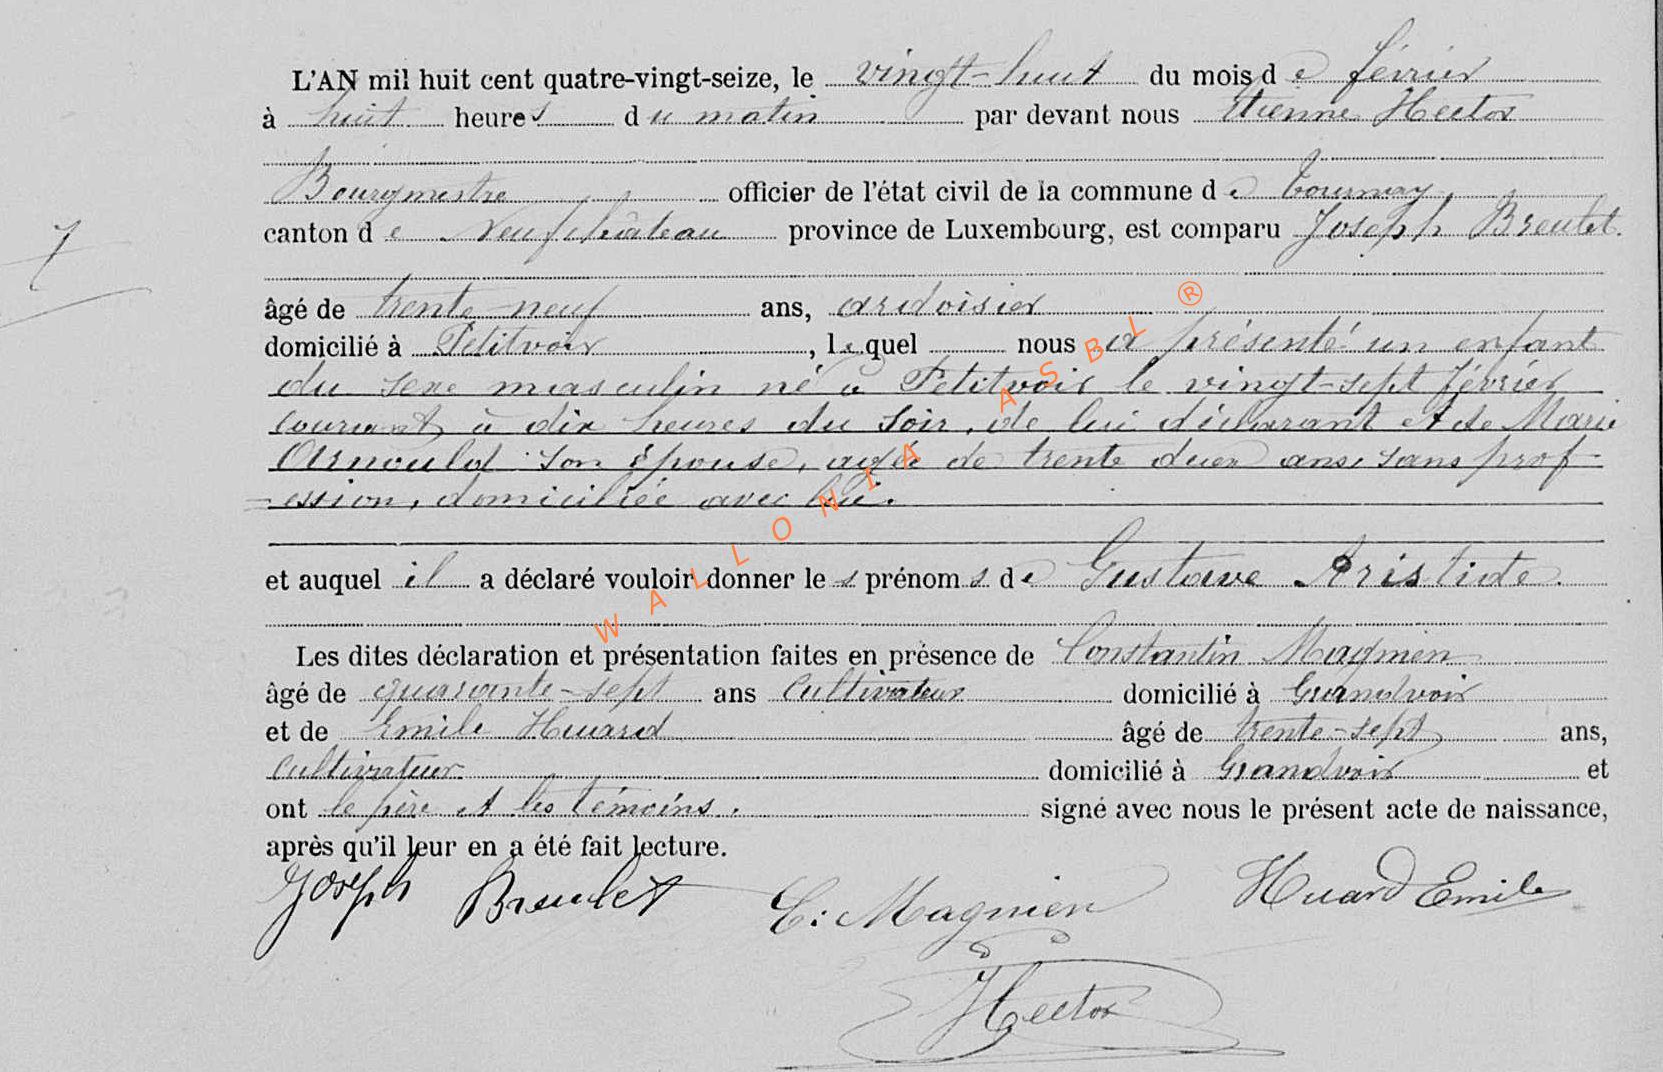 L'AN mil huit cent quatre-vingt-seize, le vingt-huit du mois de février
à huit heures du matin par devant nous Etienne Hector
Bourgmestre officier de l'état civil de la commune de Tournay,
7
canton de Neufchâteau province de Luxembourg, est comparu Joseph Breulet.
âgé de trente-neuf ans, ardoisier
domicilié à Petitvoir, lequel nous a présenté un enfant
du sexe masculin né à Petitvoir le vingt-sept février
courant à dix heures du soir, de lui déclarant et de Marie
Arnould son épouse, agée de trente deux ans, sans prof-
=ession, domiciliée avec lui.
et auquel il a déclaré vouloir donner les prénoms de Gustave Aristide.
Les dites déclaration et présentation faites en présence de Constantin Magnien
âgé de quarante-sept ans cultivateur domicilié à Grandvoir
et de Emile Huard âgé de trente-sept ans,
cultivateur domicilié à Grandvoir et
ont le père et les témoins. signé avec nous le présent acte de naissance,
après qu'il leur en a été fait lecture.
Joseph Breulet C: Magnien Huard Emile
Hector
WALLONIA ASBL ®